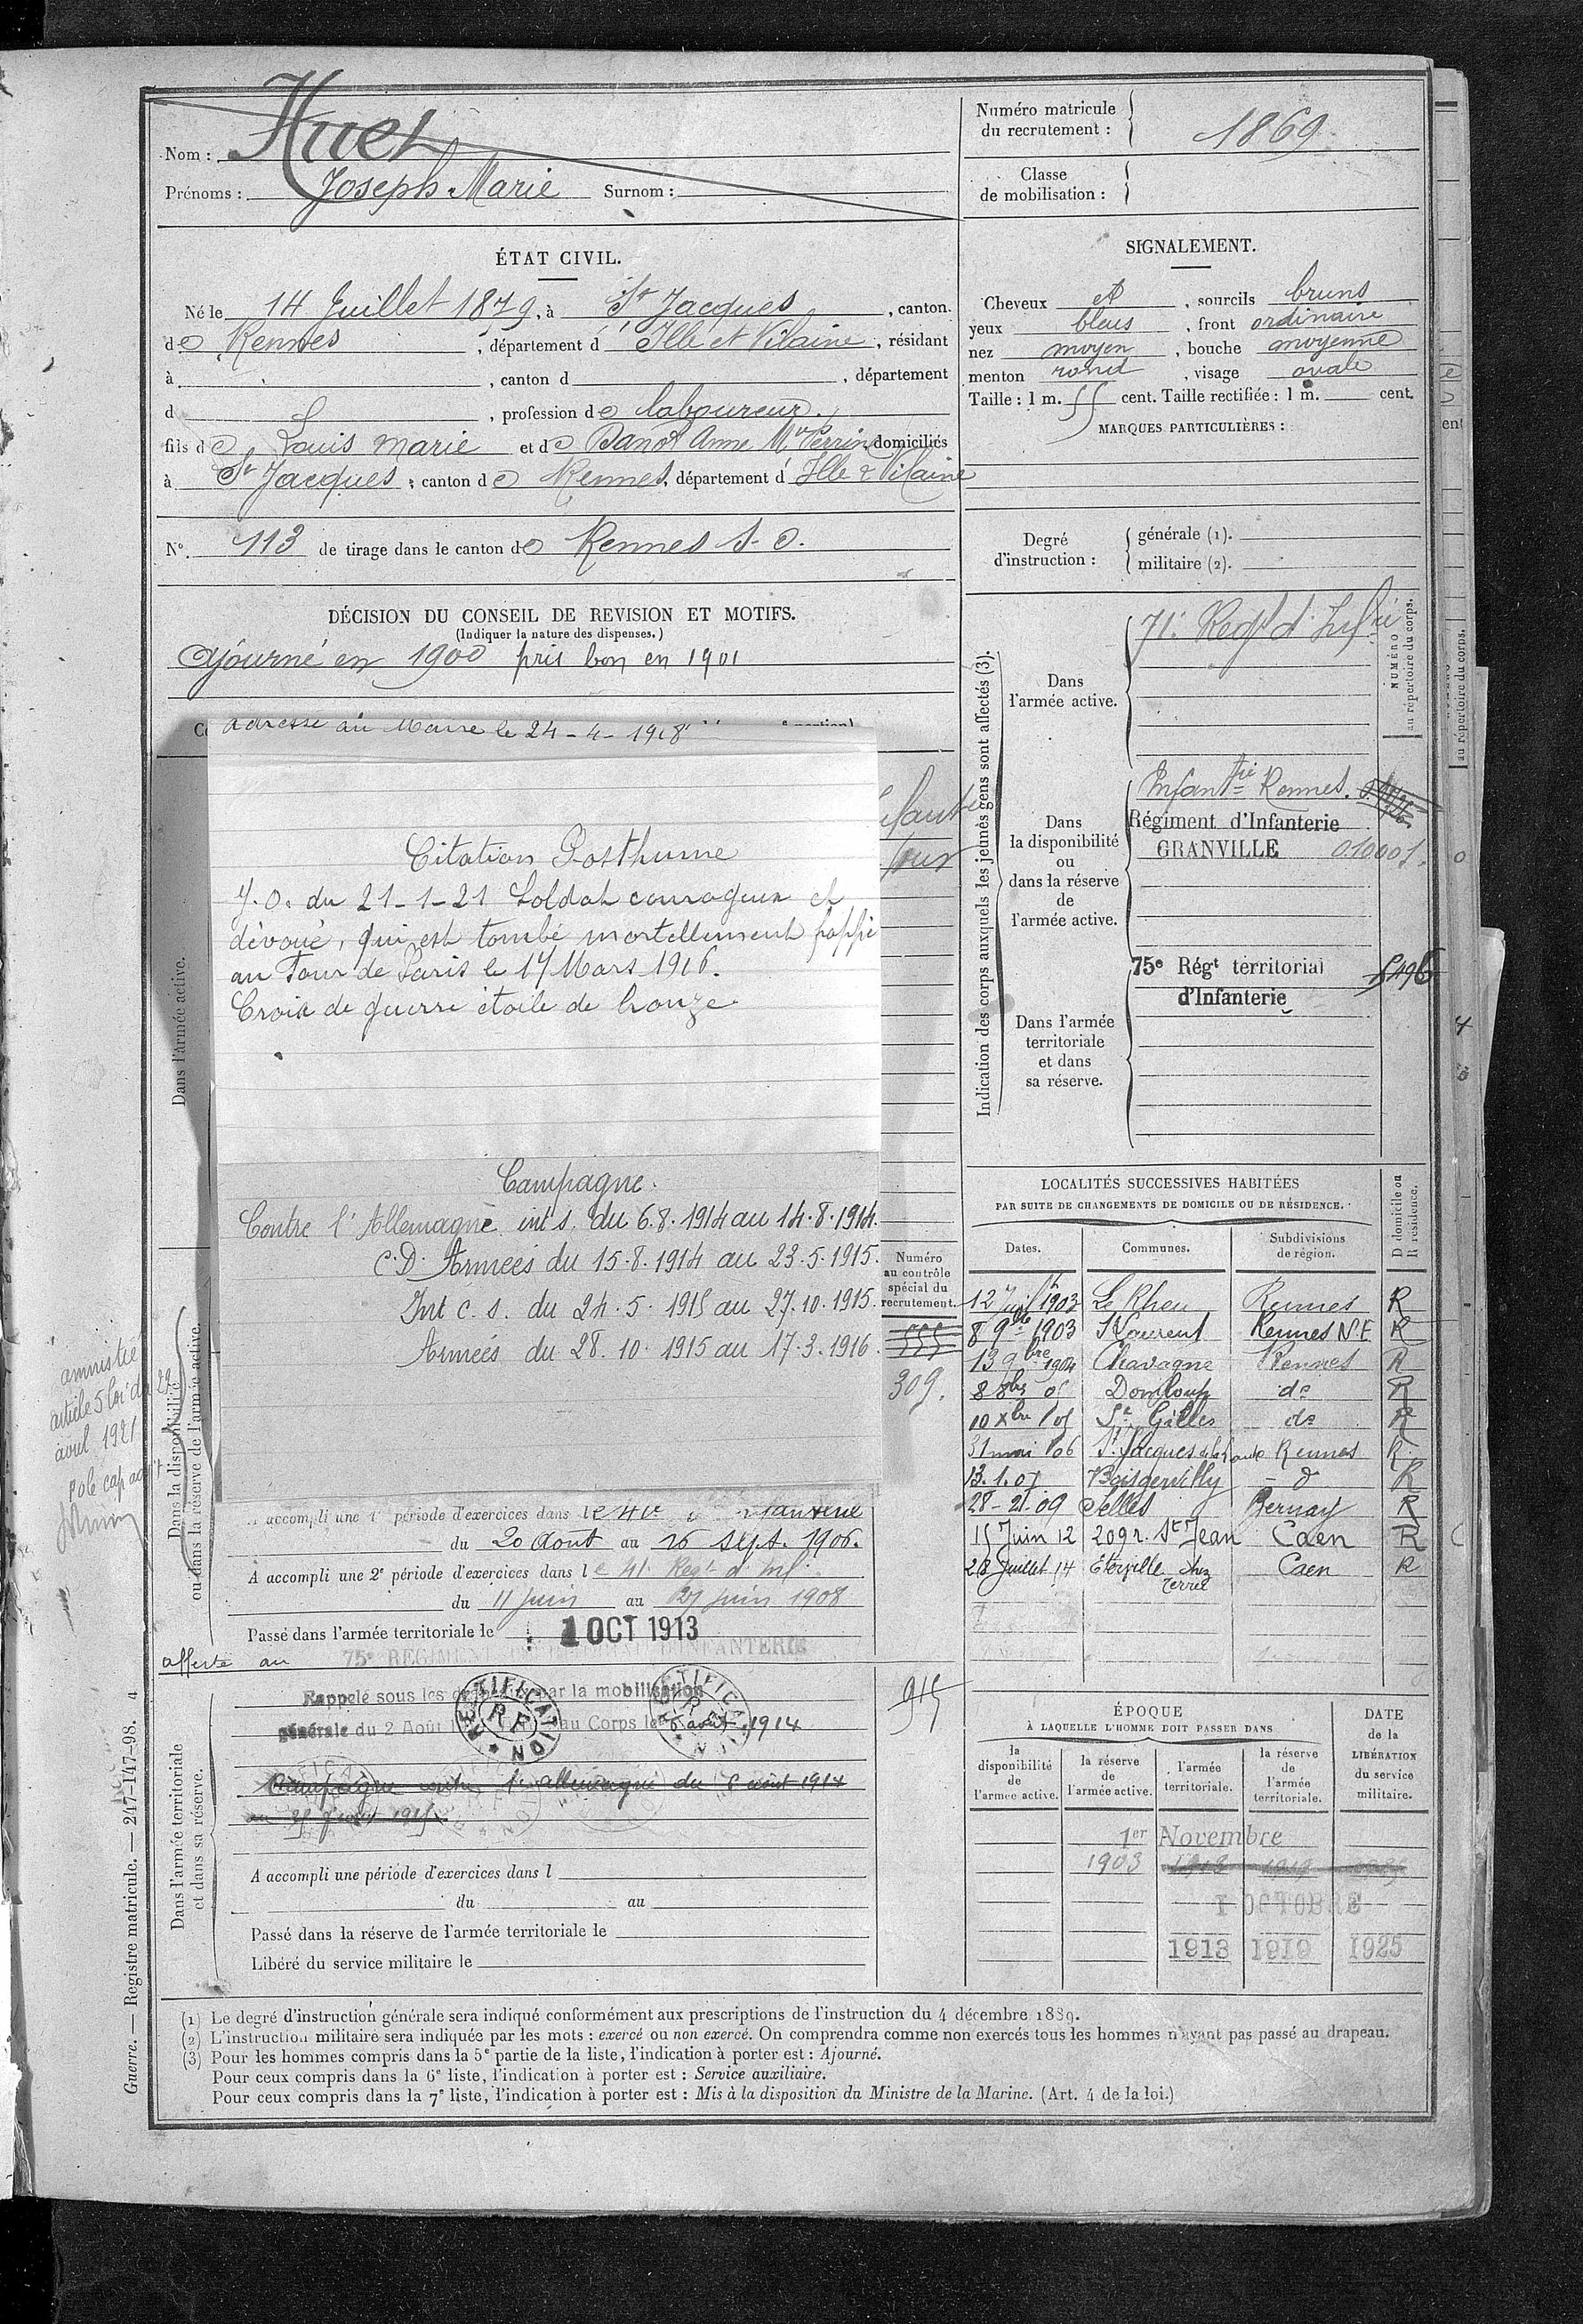 Nom : Huet
Prénoms : Joseph Marie Surnom :
Numéro matricule du recrutement : 1869
Classe de mobilisation :
ÉTAT CIVIL.
Né le 14 Juillet 1879, à St Jacques, canton.
de Rennes, département d'Ille et Vilaine, résidant
à , canton d , département
d , profession de laboureur.
fils de Louis Marie et de Danot Anne Mie Perrine domiciliés
à St Jacques, canton de Rennes, département d'Ille & Vilaine
No. 113 de tirage dans le canton de Rennes S. O.
SIGNALEMENT.
Cheveux et , sourcils bruns
yeux bleus , front ordinaire
nez moyen , bouche moyenne
menton rond , visage ovale
Taille : 1 m. 55 cent. Taille rectifiée : 1 m. cent.
MARQUES PARTICULIÈRES :
Degré d'instruction : générale (1).
militaire (2).
DÉCISION DU CONSEIL DE REVISION ET MOTIFS.
(Indiquer la nature des dispenses.)
Ajourné en 1900 pris bon en 1901
adresse au Maire le 24-4-1918
Citation Posthume
J.O. du 21-1-21 Soldat courageux et
dévoué, qui est tombé mortellement frappé
au Four de Paris le 17 Mars 1916.
Croix de guerre étoile de bronze.
Campagne.
Contre l'Allemagne int s. du 6.8.1914 au 14.8.1914.
C.D. Armées du 15.8.1914 au 23.5.1915.
Int c. s. du 24.5.1915 au 27.10.1915.
Armées du 28.10.1915 au 17.3.1916.
Numéro
au contrôle
spécial du
recrutement.
555
309.
Dans l'armée active.
Dans la disponibilité
ou dans la réserve de l'armée active.
amnistié
article 5 loi du 29
avril 1921
A accompli une 1e période d'exercices dans le
du 20 Aout au 16 sept. 1906.
A accompli une 2e période d'exercices dans le 41 Regt d'inf.
du 11 juin au 27 juin 1908
Passé dans l'armée territoriale le 1 OCT 1913
affecté au 75e REGIMENT TERRITORIAL D'INFANTERIE
Dans l'armée territoriale
et dans sa réserve.
Rappelé sous les drapeaux par la mobilisation
générale du 2 Août au Corps le 6 août 1914
915
RECTIFICATION
RF
RECTIFICATION
RF
Campagne contre l'allemagne du 6 août 1914
A accompli une période d'exercices dans l
du au
Passé dans la réserve de l'armée territoriale le
Libéré du service militaire le
Indication des corps auxquels les jeunes gens sont affectés (3).
Dans
l'armée active.
71e Regt d'Infie
NUMÉRO
au répertoire du corps.
Dans
la disponibilité
ou
dans la réserve
de
l'armée active.
Infantrie Rennes.
Régiment d'Infanterie
GRANVILLE 010001.
Dans l'armée
territoriale
et dans
sa réserve.
75e Régt territorial
d'Infanterie
5496
LOCALITÉS SUCCESSIVES HABITÉES
PAR SUITE DE CHANGEMENTS DE DOMICILE OU DE RÉSIDENCE.
Dates. Communes. Subdivisions de région. D domicile ou R résidence.
12 Juilt 1903 Le Rheu Rennes R
8 9bre 1903 St Laurent Rennes N.E R
13 9bre 1904 Chavagne Rennes R
8 8bre 05 Domloup do R
10 Xbre 05 St Gilles do R
31 mai 06 St Jacques de la Lande Rennes R.
13.1.07 Boisgervilly d R
28-2.09 Selles Bernay R
15 Juin 12 209 r. St Jean Caen R
28 Juillet 14 Eterville chez Caen R
ÉPOQUE
À LAQUELLE L'HOMME DOIT PASSER DANS
la disponibilité de l'armée active.
la réserve de l'armée active.
l'armée territoriale.
la réserve de l'armée territoriale.
DATE de la LIBÉRATION du service militaire.
1er Novembre
1903 1913 1919
1 OCTOBRE
1913 1919 1925
(1) Le degré d'instruction générale sera indiqué conformément aux prescriptions de l'instruction du 4 décembre 1889.
(2) L'instruction militaire sera indiquée par les mots : exercé ou non exercé. On comprendra comme non exercés tous les hommes n'ayant pas passé au drapeau.
(3) Pour les hommes compris dans la 5e partie de la liste, l'indication à porter est : Ajourné.
Pour ceux compris dans la 6e liste, l'indication à porter est : Service auxiliaire.
Pour ceux compris dans la 7e liste, l'indication à porter est : Mis à la disposition du Ministre de la Marine. (Art. 4 de la loi.)
Guerre. — Registre matricule. — 247-147-98. 4